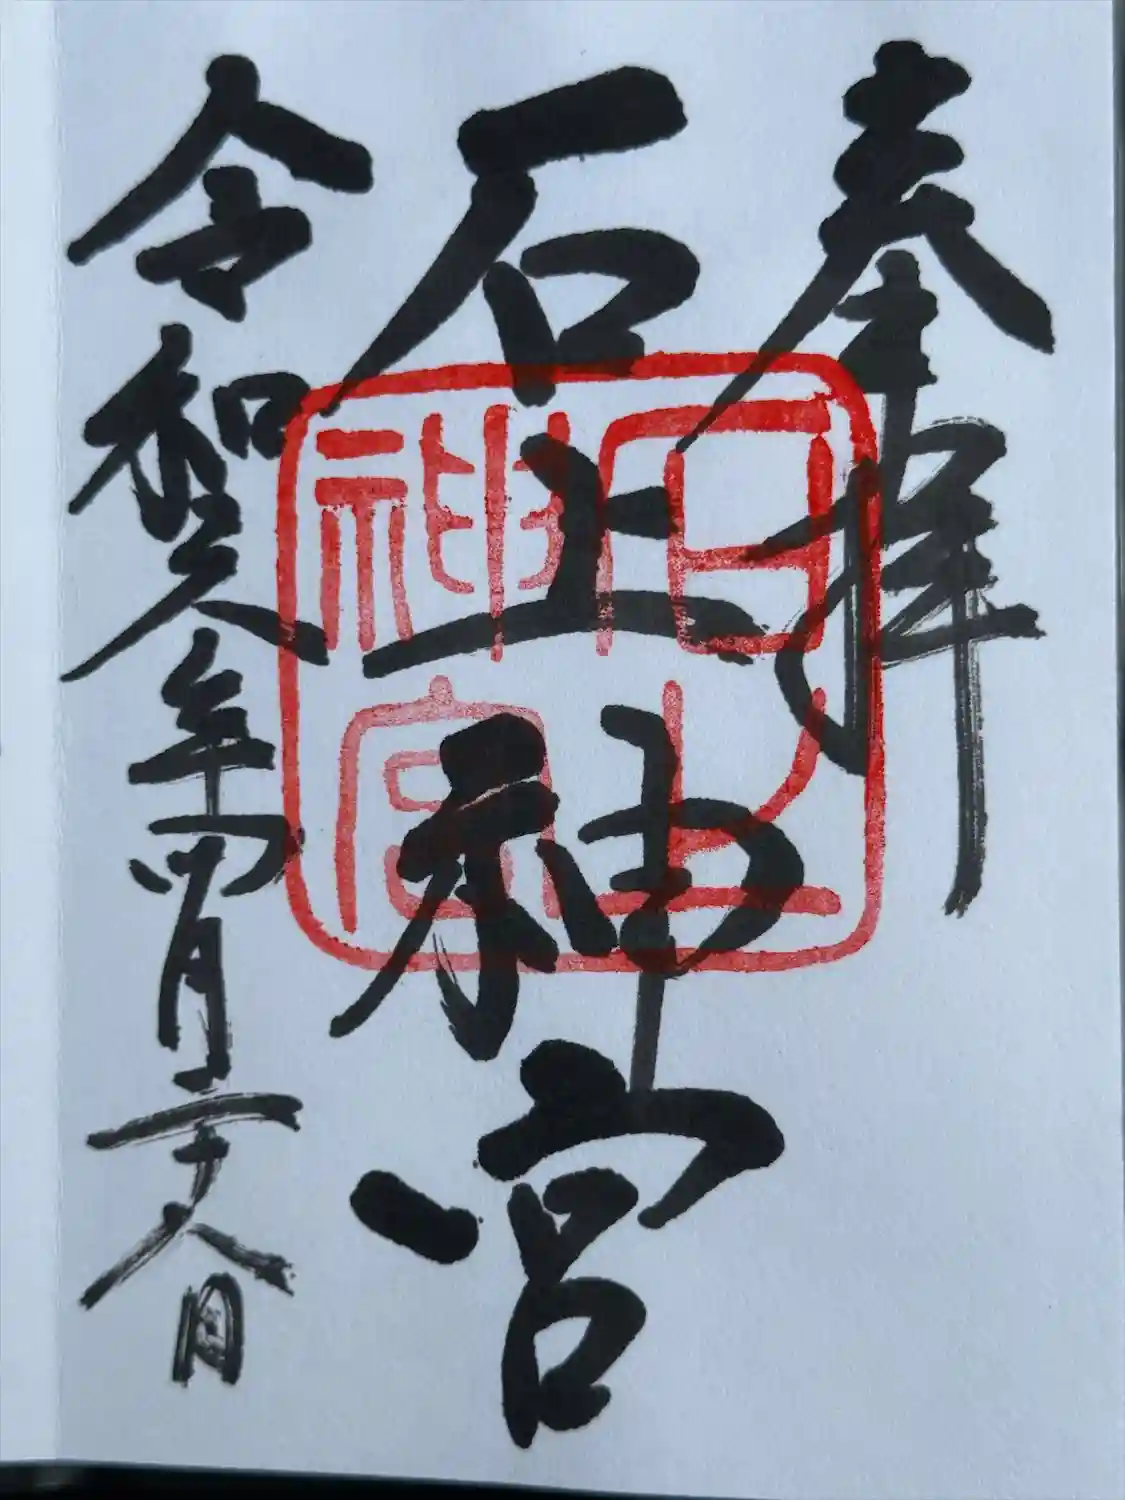 奉拝
石上神宮
石上
神宮
令和六年四月二十八日